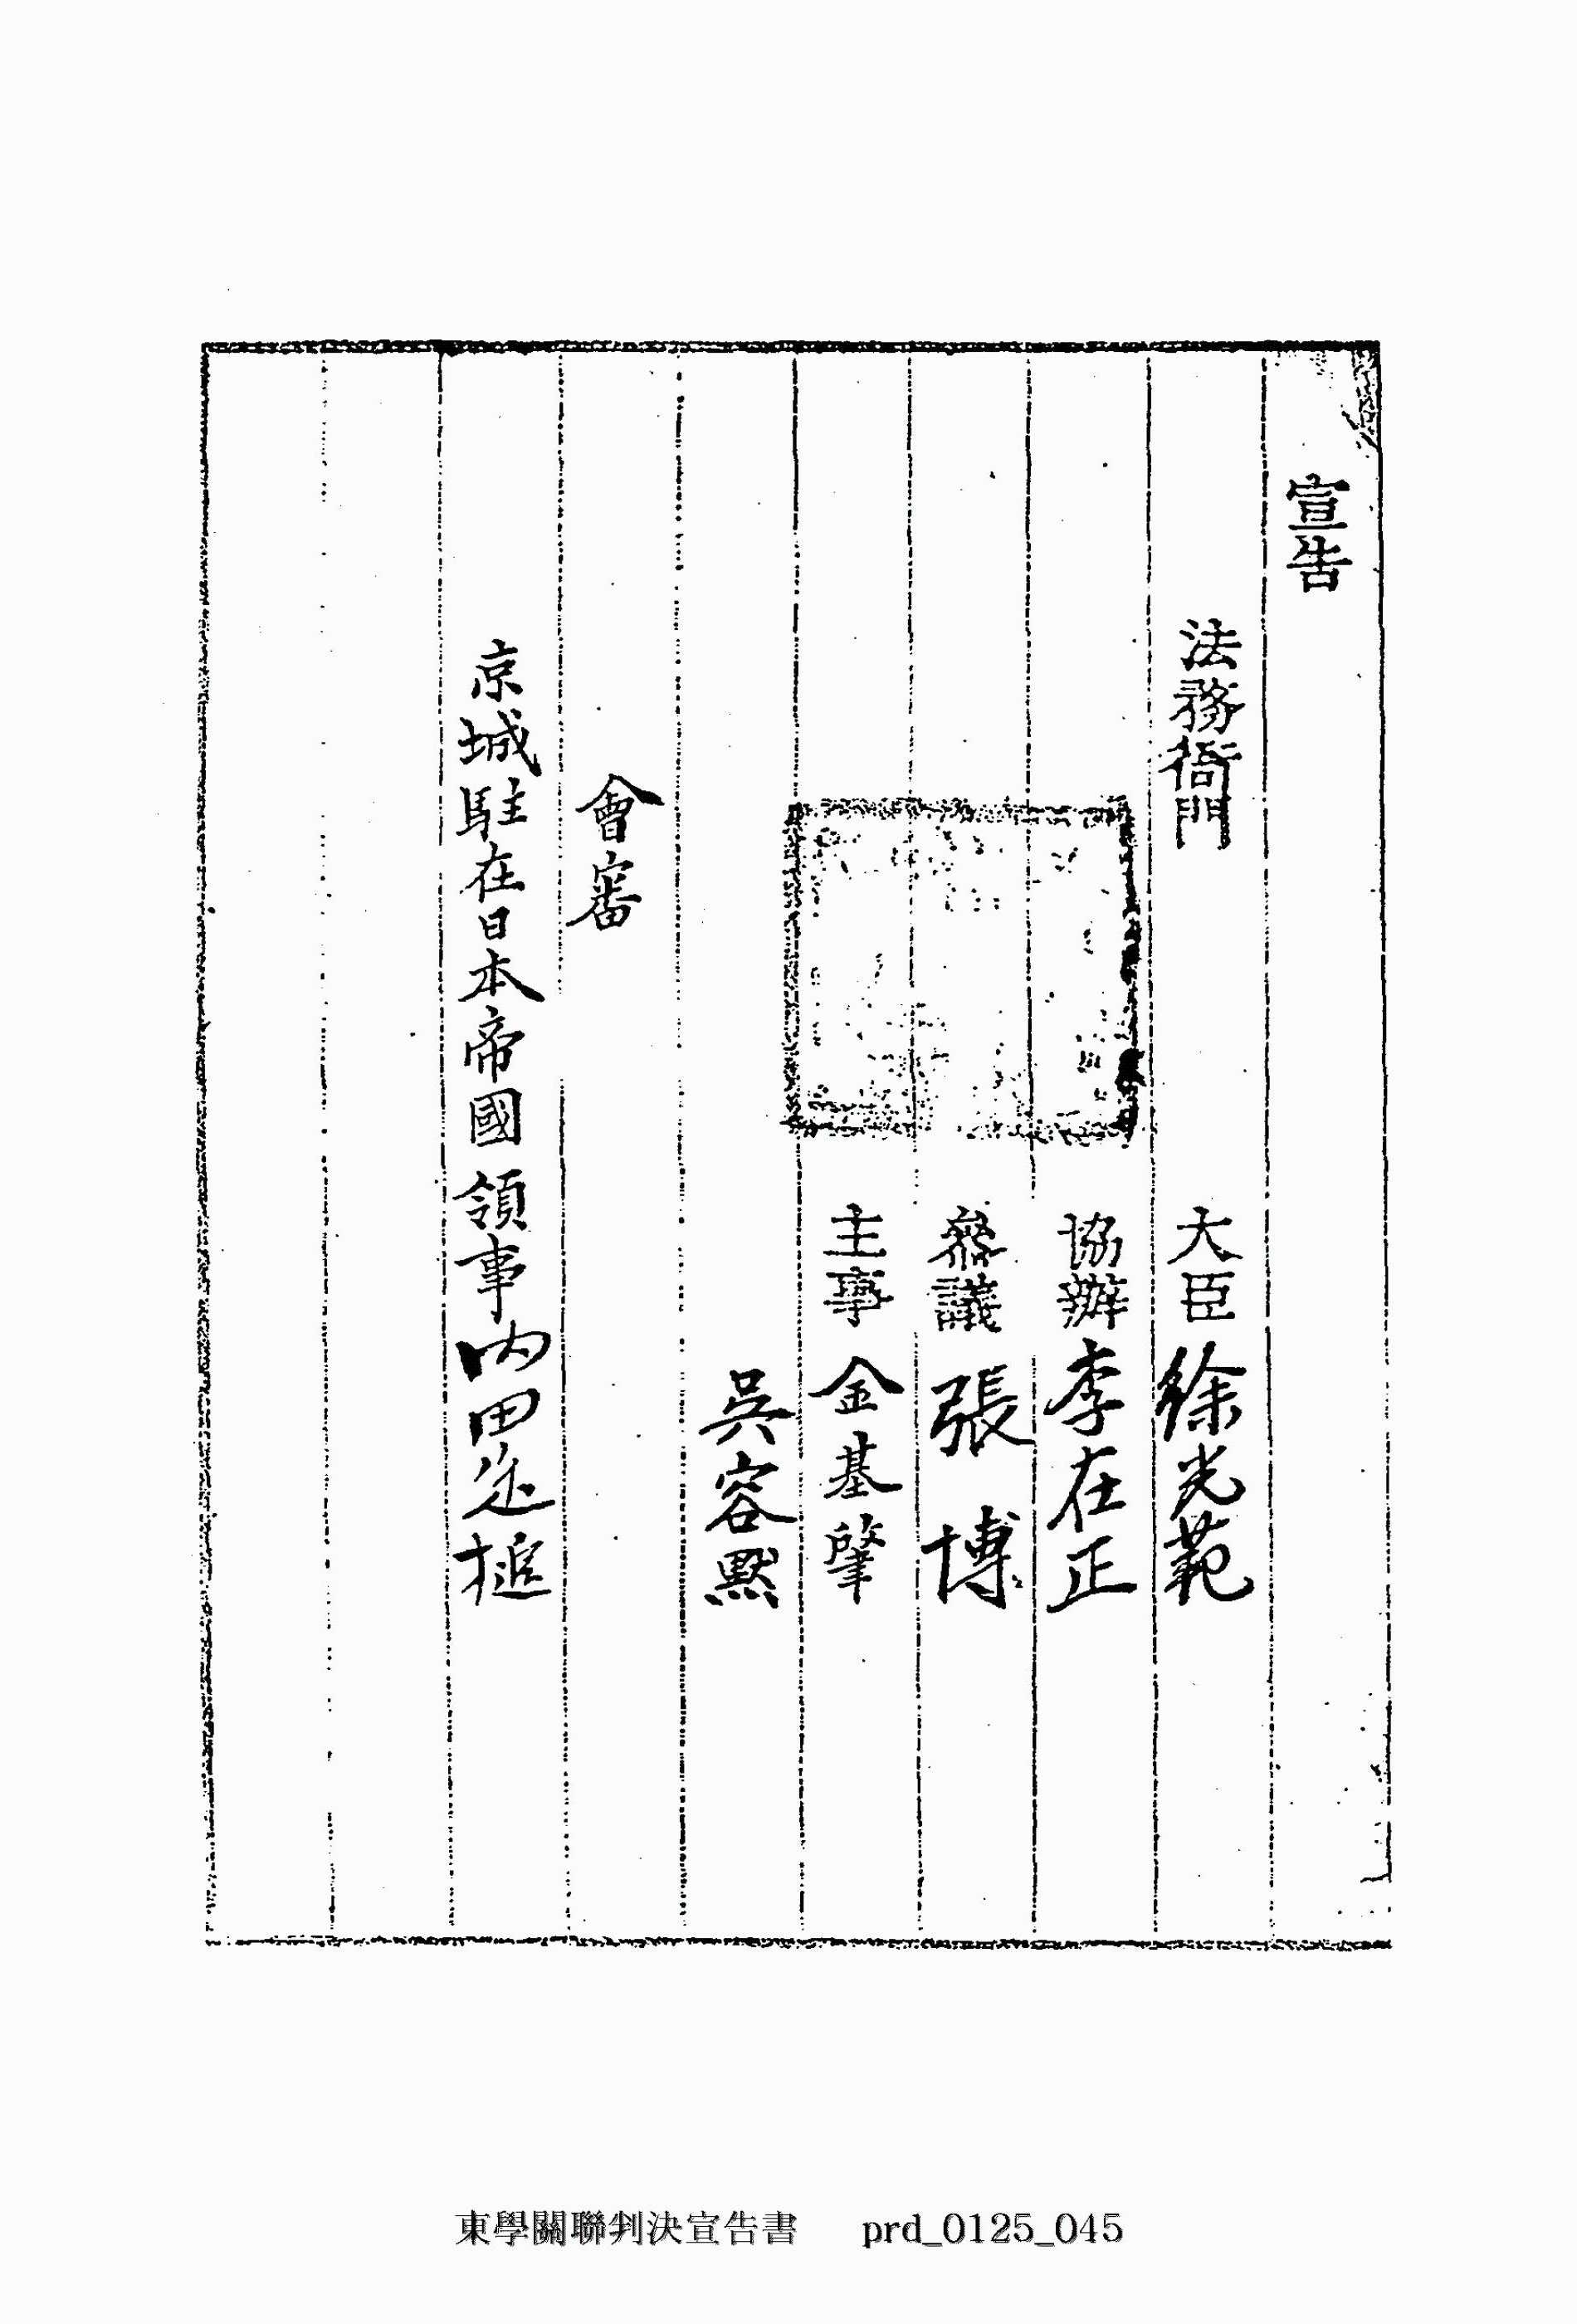 宣告
法務衙門 大臣 徐光範
協辦 李在正
參議 張 博
主事 金基肇
吳容默
會審
京城駐在日本帝國領事内田定槌
東學關聯判決宣告書 prd_0125_045